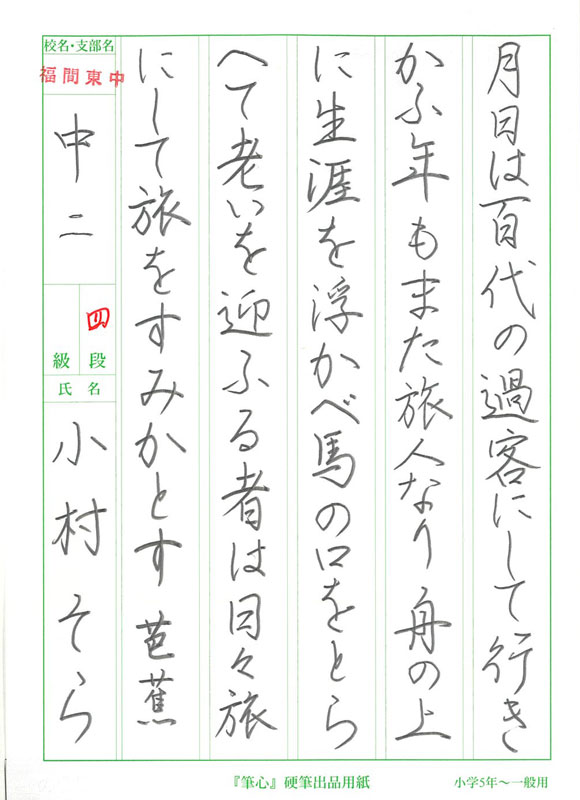 月日は百代の過客にして行き
かふ年もまた旅人なり舟の上
に生涯を浮かべ馬の口をとら
へて老いを迎ふる者は日々旅
にして旅をすみかとす 芭蕉
校名・支部名
福間東中
中二
四
段
級
氏名
小村そら
『筆心』硬筆出品用紙
小学5年〜一般用